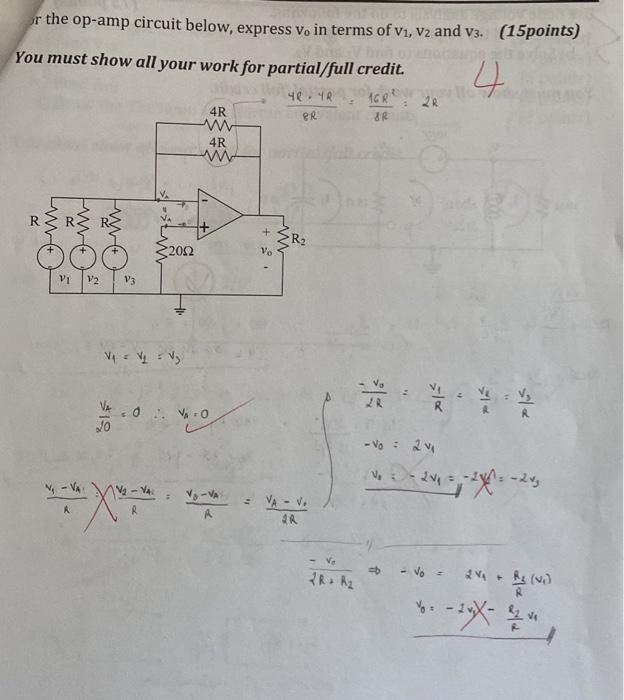 r the op-amp circuit below, express vo in terms of v1, v2 and v3. (15points)
You must show all your work for partial/full credit.
4
4R · 4R / 8R = 16R² / 8R = 2R
4R
4R
VA
VA
-
+
R R R
+ + +
v1 v2 v3
20Ω
+
vo
-
R2
V1 = V2 = V3
VA / 20 = 0 ∴ VA = 0
V1 - VA / R = V2 - VA / R = V3 - VA / R = VA - Vo / 2R
- Vo / 2R = V1 / R = V2 / R = V3 / R
- Vo = 2 V1
Vo = - 2V1 = -2V2 = -2V3
- Vo / 2R + R2 ⇒ - Vo = 2V1 + R2 / R (V1)
Vo = - 2V1 - R2 / R V1